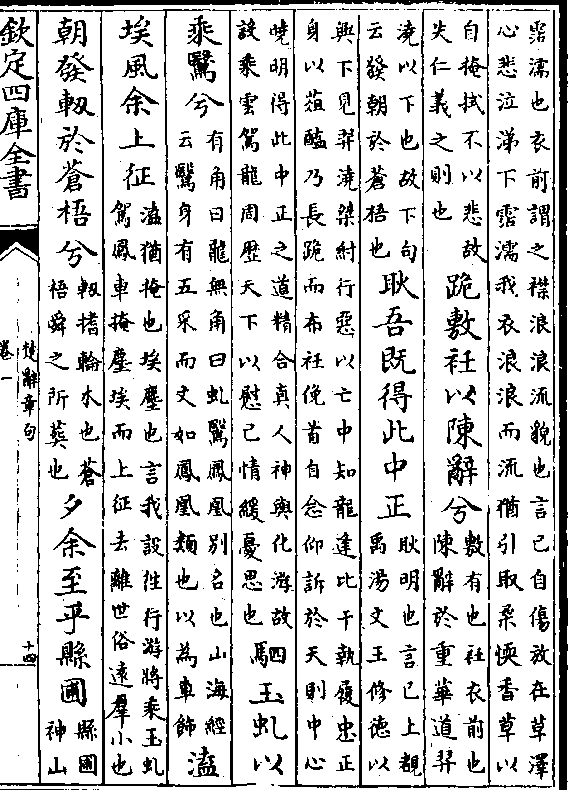 霑濡也衣前謂之襟浪浪流貌也言己自傷放在草澤
心悲泣涕下霑濡我衣浪浪而流猶引取柔愞香草以
自掩拭不以悲故
失仁義之則也
跪敷衽以陳辭兮
敷有也衽衣前也
陳辭於重華道羿
澆以下也故下句
云發朝於蒼梧也
耿吾既得此中正
耿明也言己上覩
禹湯文王修德以
興下見羿澆桀紂行惡以亡中知龍逢比干執履忠正
身以葅醢乃長跪而布衽俛首自念仰訴於天則中心
曉明得此中正之道精合真人神與化游故
設乘雲駕龍周歷天下以慰己情緩憂思也
駟玉虬以
乘鷖兮
有角曰龍無角曰虬鷖鳳凰別名也山海經
云鷖身有五采而文如鳳凰類也以為車飾
溘
埃風余上征
溘猶掩也埃塵也言我設往行游將乘玉虬
駕鳳車掩塵埃而上征去離世俗遠羣小也
朝發軔於蒼梧兮
軔搘輪木也蒼
梧舜之所葬也
夕余至乎縣圃
縣圃
神山
欽定四庫全書
楚辭章句
卷一
十四